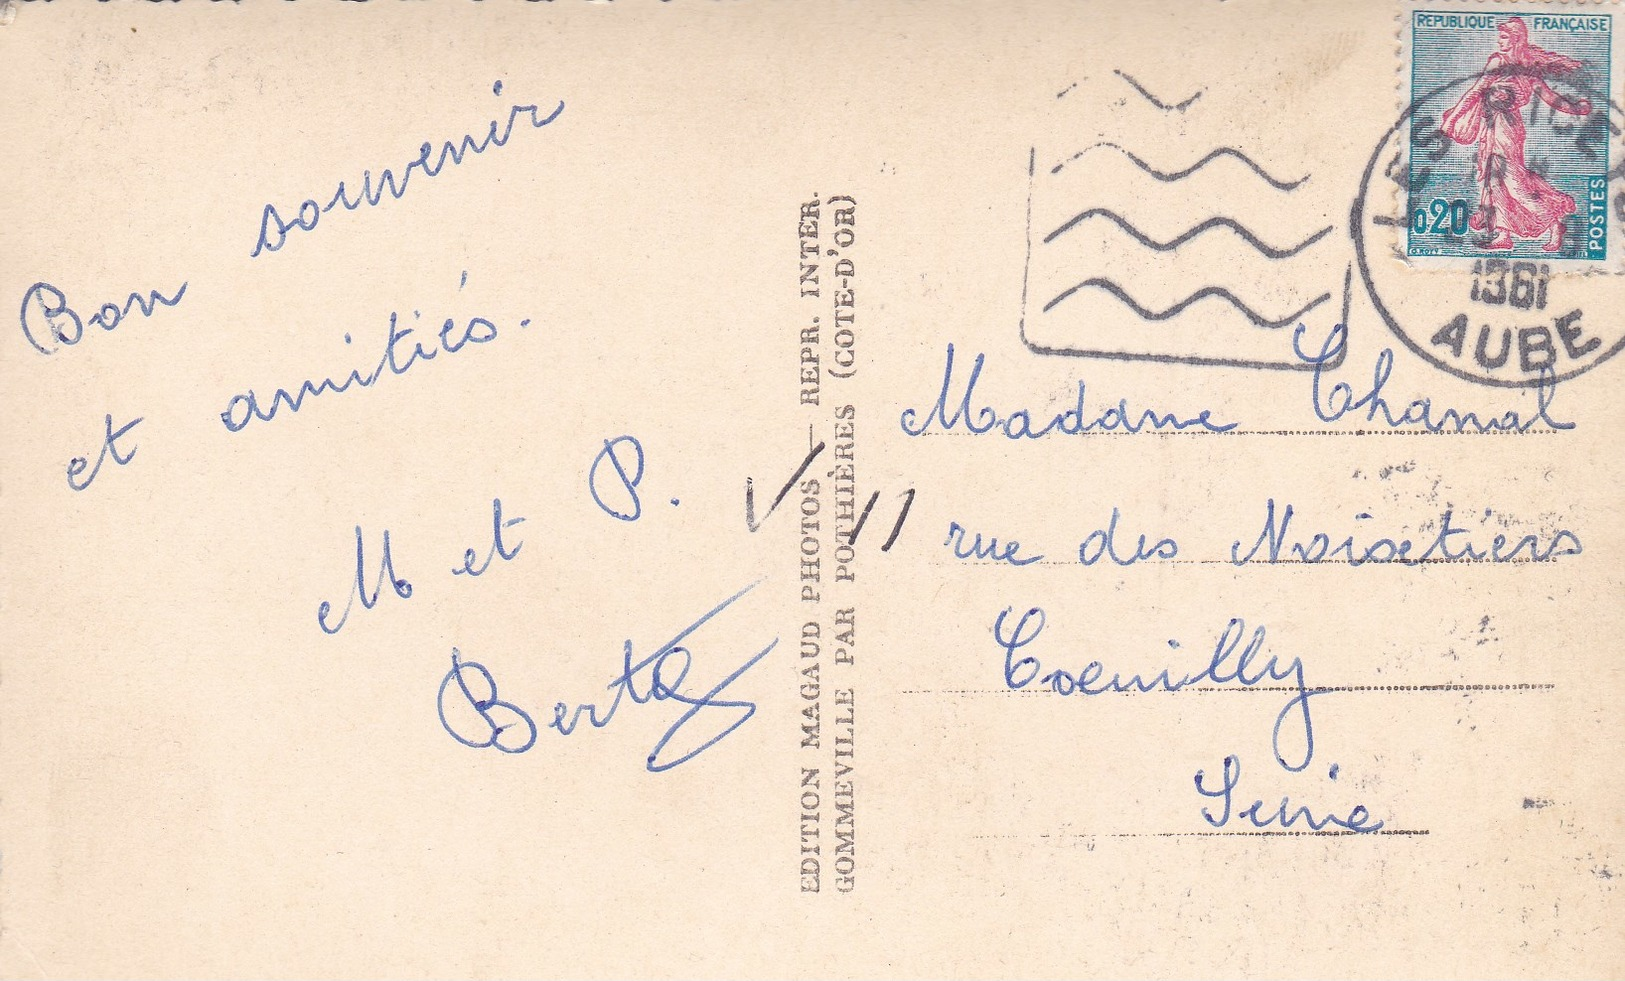 Bon souvenir
et amitiés.
M et P.
EDITION MAGAUD PHOTOS — REPR. INTER.
GOMMEVILLE PAR POTHIÈRES (COTE-D'OR)
REPUBLIQUE FRANÇAISE
0,20
POSTES
LES RICEYS
1961
AUBE
Madame Chanal
rue des Noisetiers
Seine